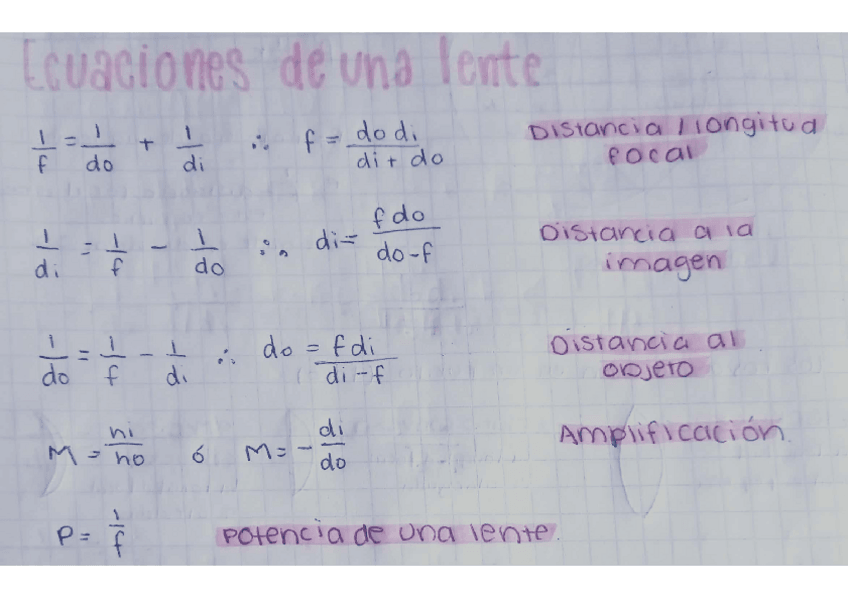 Ecuaciones de una lente
1/f = 1/do + 1/di ∴ f = do di/di + do Distancia / longitud focal
1/di = 1/f - 1/do ∴ di = f do/do - f Distancia a la imagen
1/do = 1/f - 1/di ∴ do = f di/di - f Distancia al objeto
M = hi/ho ó M = - di/do Amplificación.
P = 1/f Potencia de una lente.